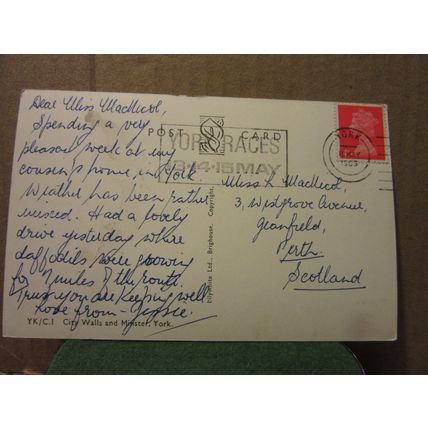 Dear Miss MacNicol,
Spending a very
pleasant week at my
cousin's home in York
Weather has been rather
mixed. Had a lovely
drive yesterday where
daffodils were growing
for 7 miles of the route.
Trust you are keeping well
Love from - Jessie.
YK/C.1 City Walls and Minster, York.
POST CARD
YORK RACES
13·14·15 MAY
YORK
Copyright, Ltd., Brighouse.
Miss K MacNicol,
3, Westgrove Avenue,
Perth
Scotland